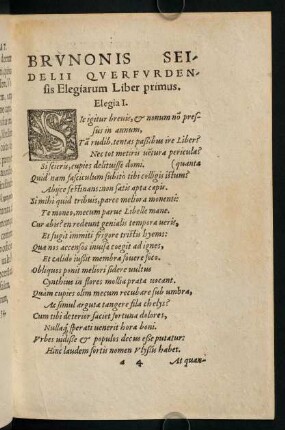 BRVNONIS SEI-
DELII QVERFVRDEN-
sis Elegiarum Liber primus.
Elegia I.
SIc igitur breuis, & nonum nō pres-
sus in annum,
Tā rudib. tentas passibus ire Liber?
Nec tot metiris vētura pericula?
Si scieris, cupies delituisse domi. (quanta
Quid nam fasciculum subitò tibi colligis istum?
Abijce festinans: non satis apta capis.
Si mihi quid tribuis, parce melior a monenti:
Te moneo, mecum parue Libelle mane.
Cur abis? en redeunt genialis tempora veris,
Et fugit immiti frigore tristis hyems:
Quæ nos accensos inuisa coegit ad ignes,
Et calido iussit membra fouere foco.
Obliquos ponit meliori sidere vultus
Cynthius in flores mollia prata vocant.
Quàm cupies olim mecum recubare sub vmbra,
Ac simul arguta tangere fila chelys?
Cum tibi deterior faciet fortuna dolores,
Nullaq́; sperati venerit hora boni.
Vrbes vidisse & populos decus esse putatur:
Hinc laudem fortis nomen Vlyssis habet.
a 4 At quan-